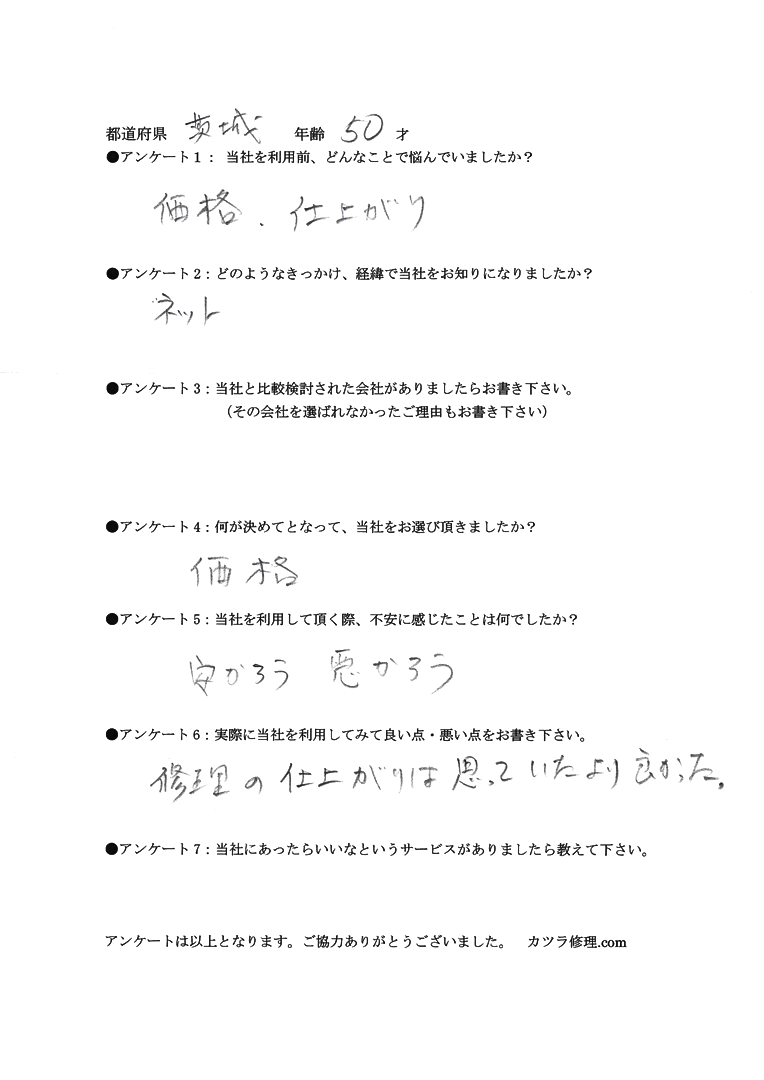 都道府県 茨城 年齢 50 才
●アンケート1： 当社を利用前、どんなことで悩んでいましたか？
価格、仕上がり
●アンケート2：どのようなきっかけ、経緯で当社をお知りになりましたか？
ネット
●アンケート3：当社と比較検討された会社がありましたらお書き下さい。
（その会社を選ばれなかったご理由もお書き下さい）
●アンケート4：何が決めてとなって、当社をお選び頂きましたか？
価格
●アンケート5：当社を利用して頂く際、不安に感じたことは何でしたか？
安かろう 悪かろう
●アンケート6：実際に当社を利用してみて良い点・悪い点をお書き下さい。
修理の仕上がりは思っていたより良かった。
●アンケート7：当社にあったらいいなというサービスがありましたら教えて下さい。
アンケートは以上となります。ご協力ありがとうございました。 カツラ修理.com